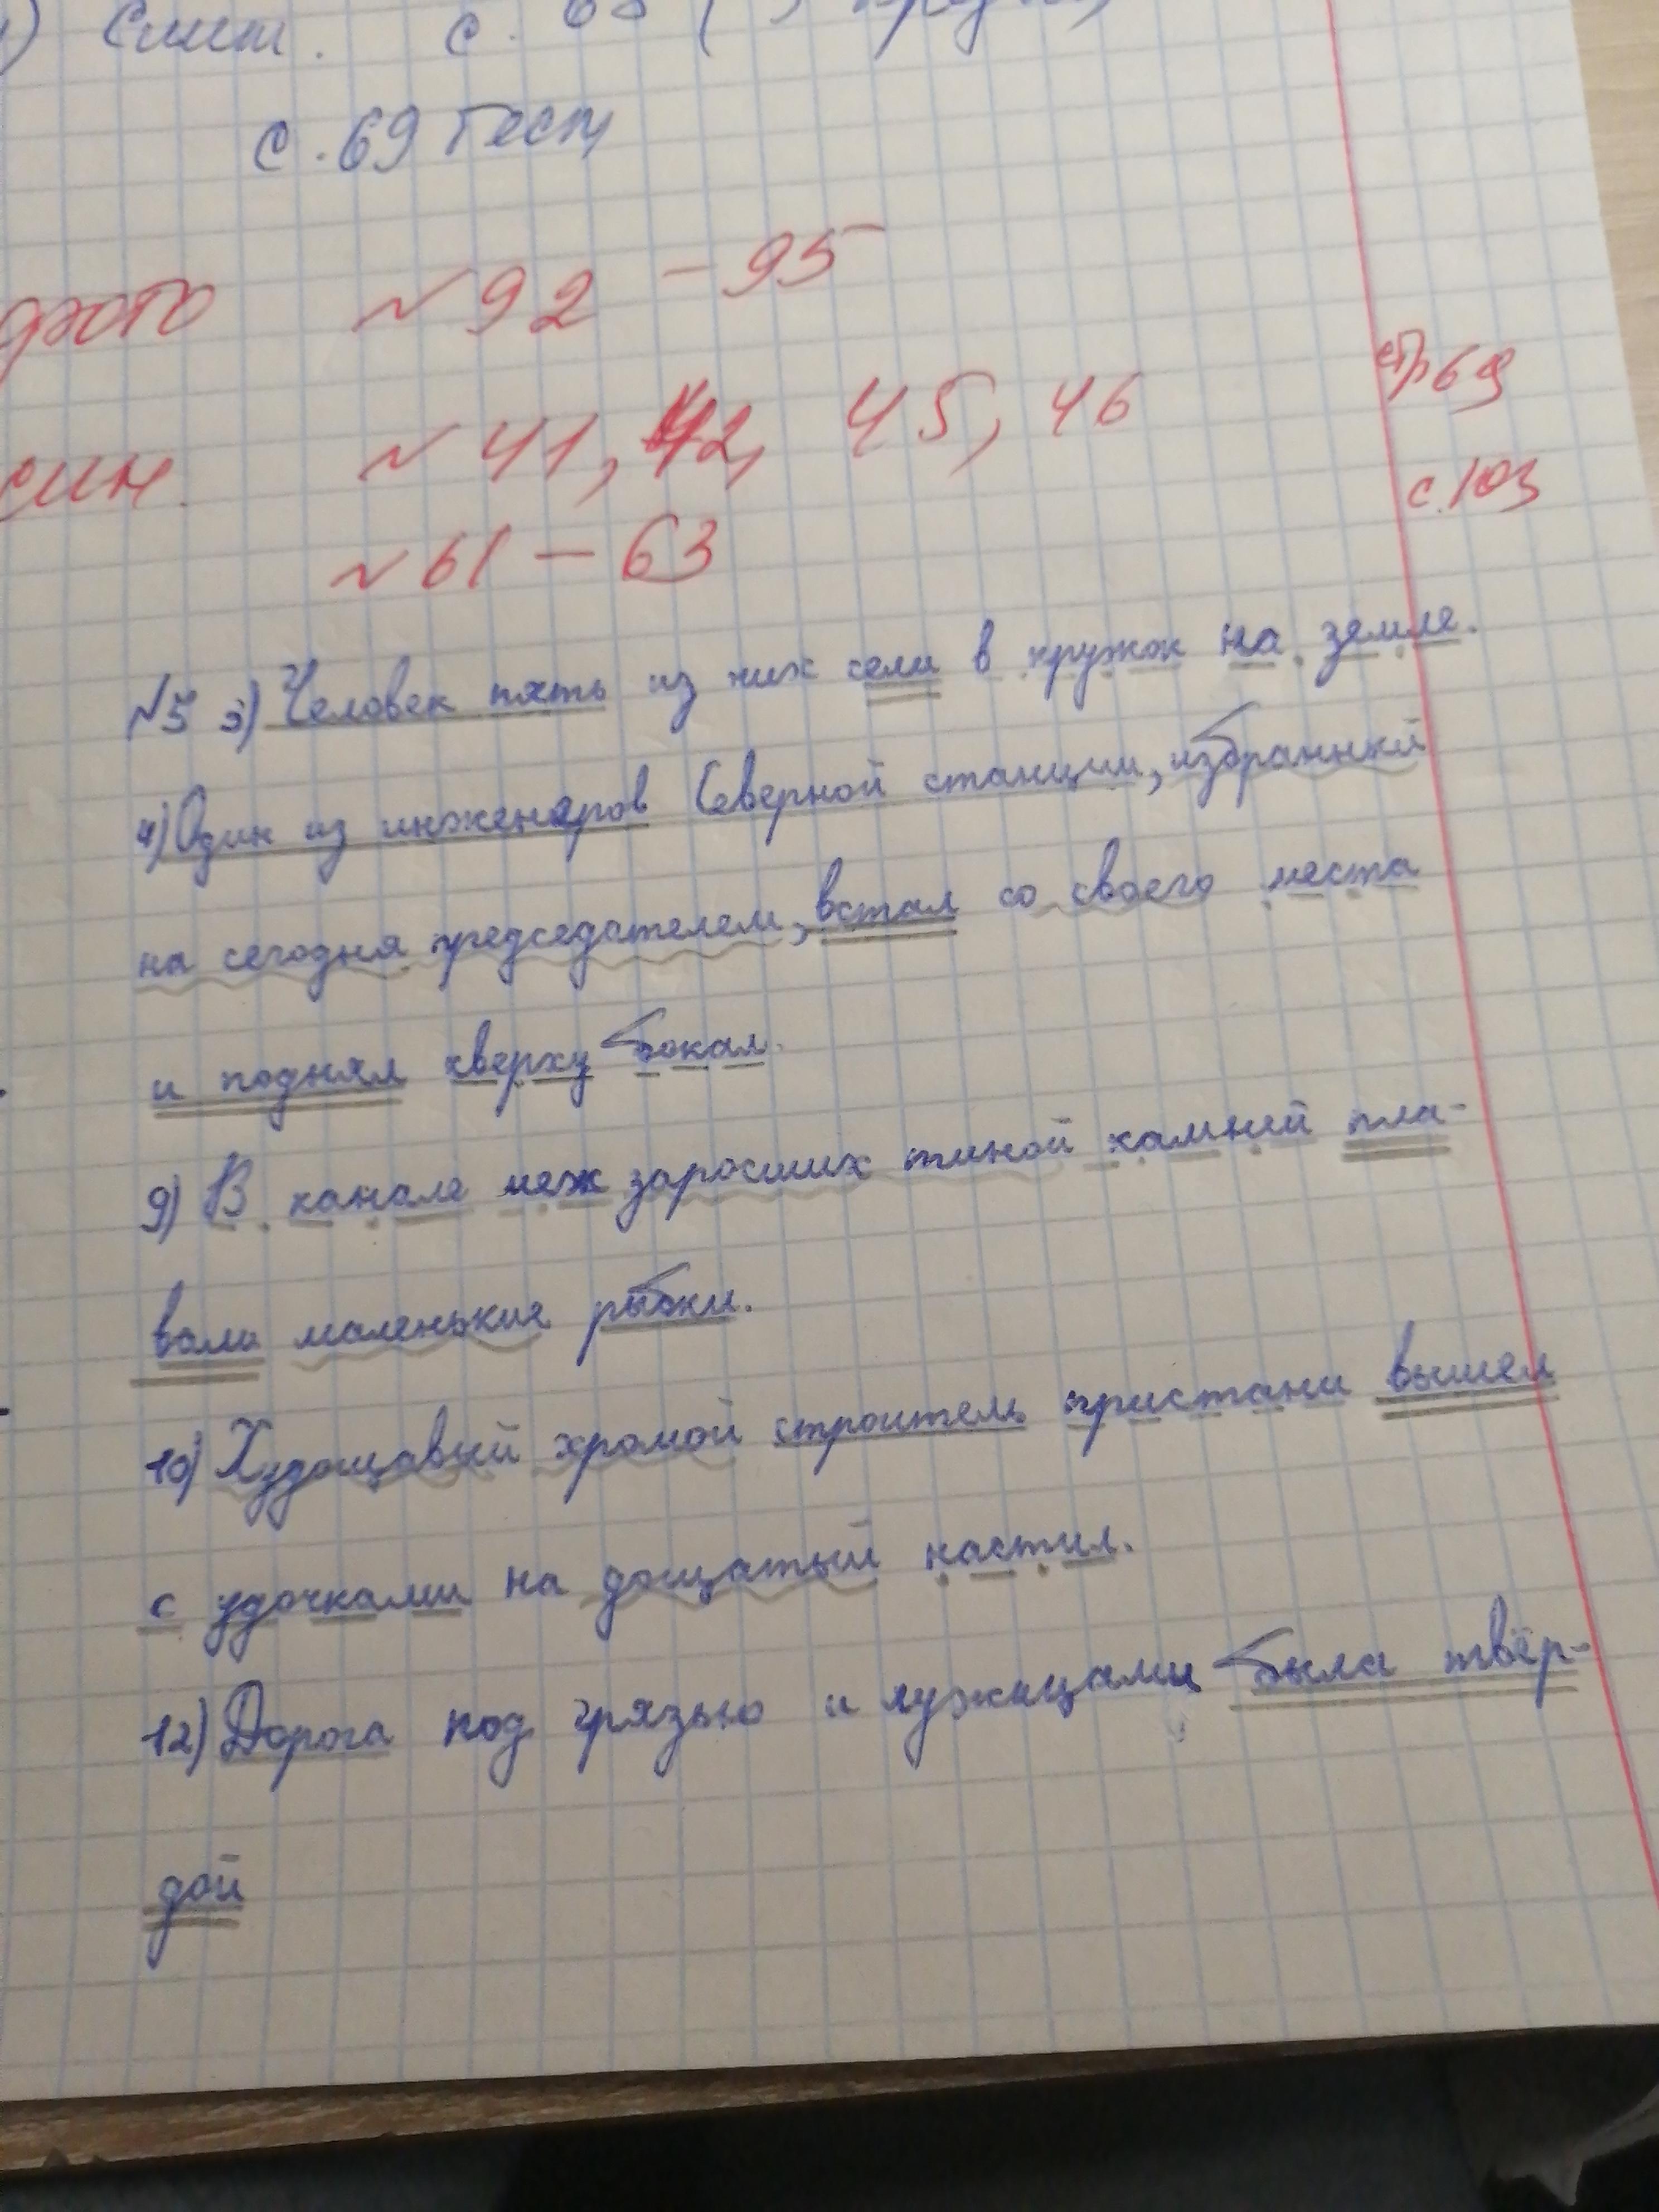 с. 69 Тест
фото № 92 – 95
син. № 41, 42, 45, 46 стр 69
№ 61 – 63 с. 103
№5 3) Человек пять из них сели в кружок на земле.
4) Один из инженеров Северной станции, избранный
на сегодня председателем, встал со своего места
и поднял кверху бокал.
9) В канале меж заросших тиной камней пла-
вали маленькие рыбки.
10) Худощавый хромой строитель пристани вышел
с удочками на дощатый настил.
12) Дорога под грязью и лужицами была твёр-
дой